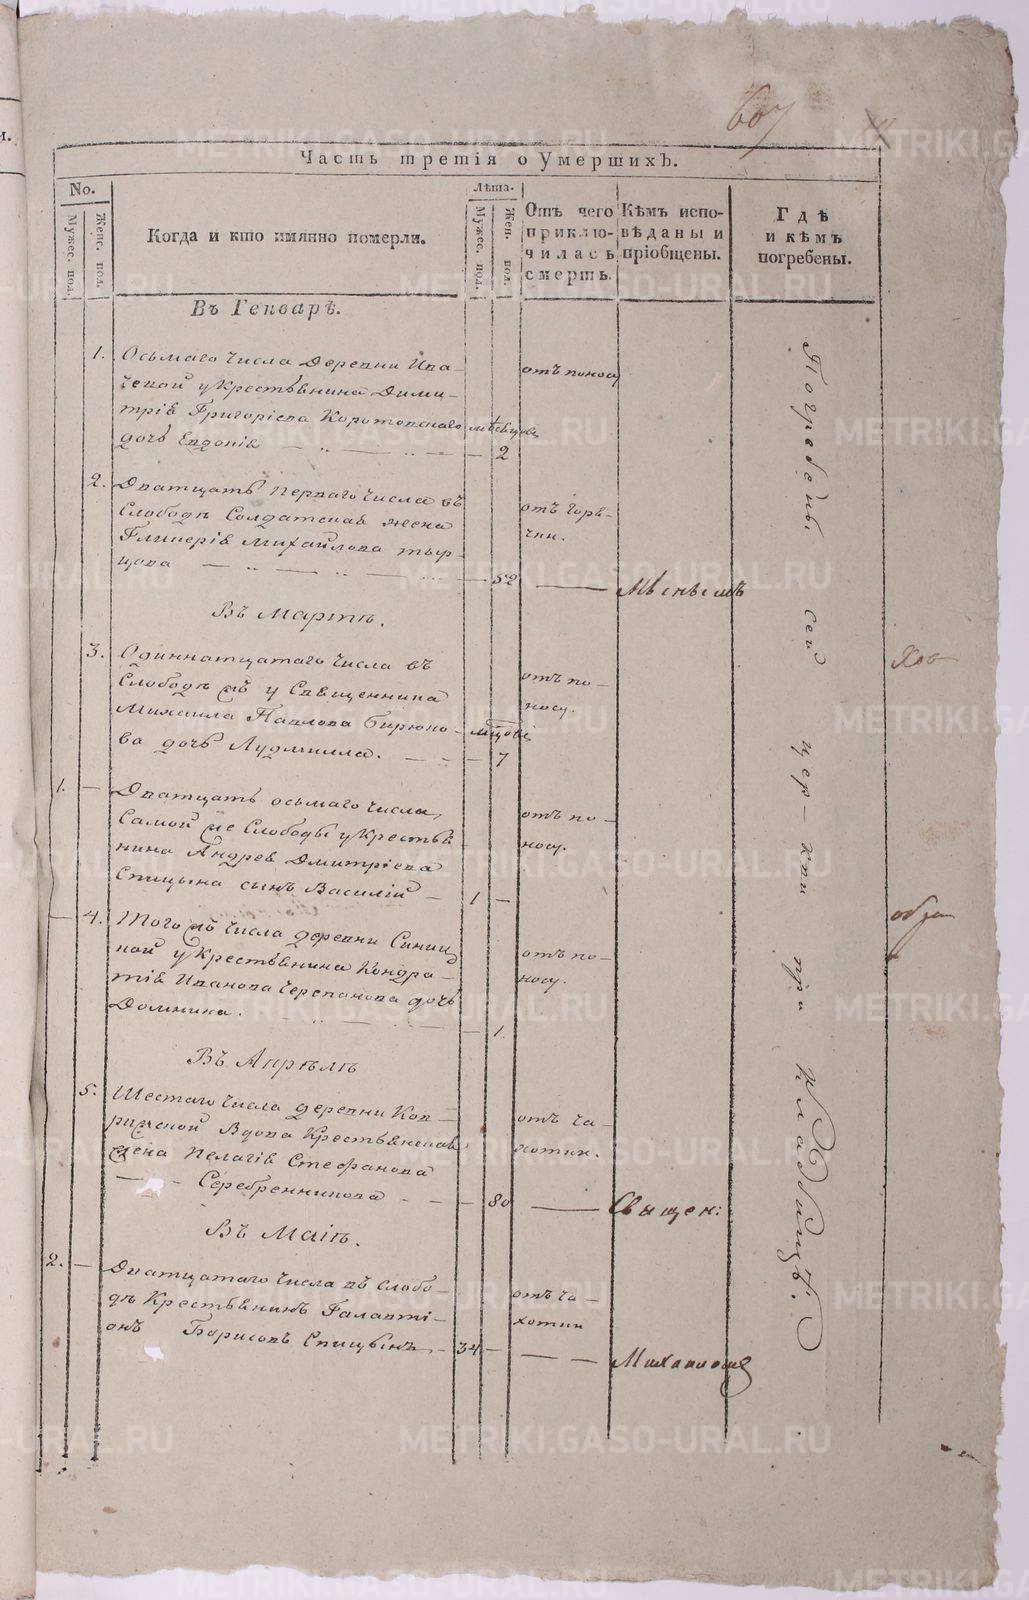 607
Часть третія о Умершихъ.
No.
Мужес. пол.
Женс. пол.
Когда и кто имянно померли.
Лѣта.
Мужес. пол.
Жен. пол.
Отъ чего приклю-
чилась
смерть.
Кѣмъ испо-
вѣданы и
пріобщены.
Гдѣ
и кѣмъ
погребены.
Въ Генварѣ.
1. Осьмаго числа Деревни Ива-
чевой у Крестьянина Дими-
трія Григоріева Коротовскаго мѣсяцовъ
дочь Евдокія 2
отъ поносу
2. Дватцать перваго числа въ
Слободѣ Солдатская жена
Гликерія Михайлова
52
отъ горя-
чки.
Въ Мартѣ.
3. Одиннатцатаго числа въ
Слободѣ жъ у Священника
Михаила Павлова Бирюко-
ва дочь Людмилла. 7
отъ по-
носу.
1. Дватцать осьмаго числа,
Самой же Слободы у Крестья-
нина Андрея Дмитріева
Спицына сынъ Василій 1
отъ по-
носу.
4. Того жъ числа деревни
ной у Крестьянина Кондра-
тія Иванова Черепанова дочь
Домника. 1
отъ по-
носу.
Въ Апрѣлѣ
5. Шестаго числа деревни Ков-
рижской Вдова Крестьянская
жена Пелагія Стефанова
Серебренникова 80
отъ ча-
хотки.
Священ:
Въ Маіѣ.
2. Дватцатаго числа въ слобо-
дѣ Крестьянинъ Галакті-
онъ Борисовъ Спицынъ 34
отъ ча-
хотки
Погребены сей цер-кви при кладбищѣ.
METRIKI.GASO-URAL.RU